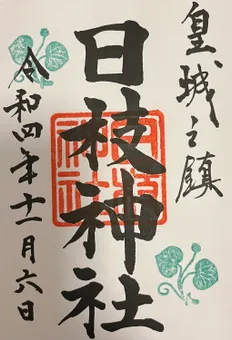 皇城之鎮
日枝神社
令和四年十一月六日